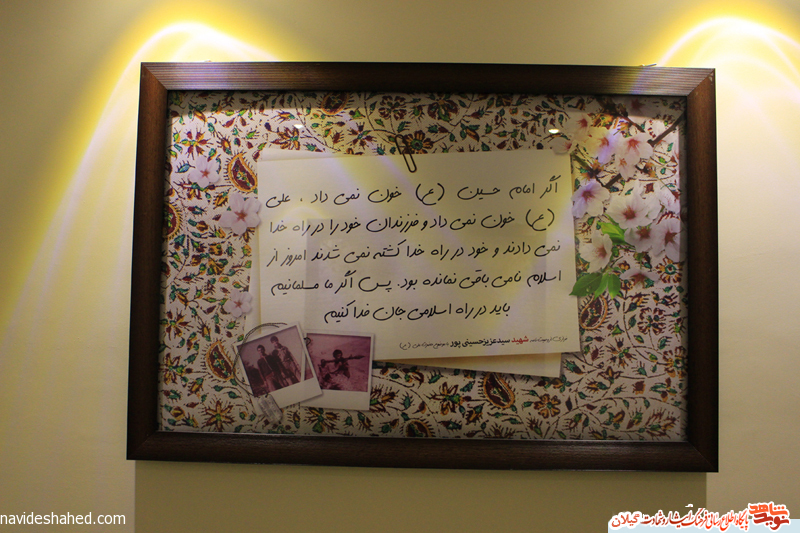 اگر امام حسین (ع) خون نمی داد ، علی
(ع) خون نمی داد و فرزندان خود را در راه خدا
نمی دادند و خود در راه خدا کشته نمی شدند امروز از
اسلام نامی باقی نمانده بود. پس اگر ما مسلمانیم
باید در راه اسلامی جان فدا کنیم
شهید سید عزیز حسینی پور
navideshahed.com
پایگاه اطلاع رسانی فرهنگ ایثار و شهادت گیلان
نوید شاهد